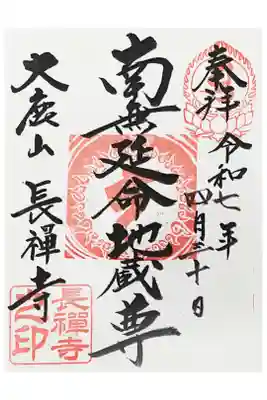 奉拝 令和七年
四月三十日
南無延命地蔵尊
大鹿山 長禅寺
長禪寺之印